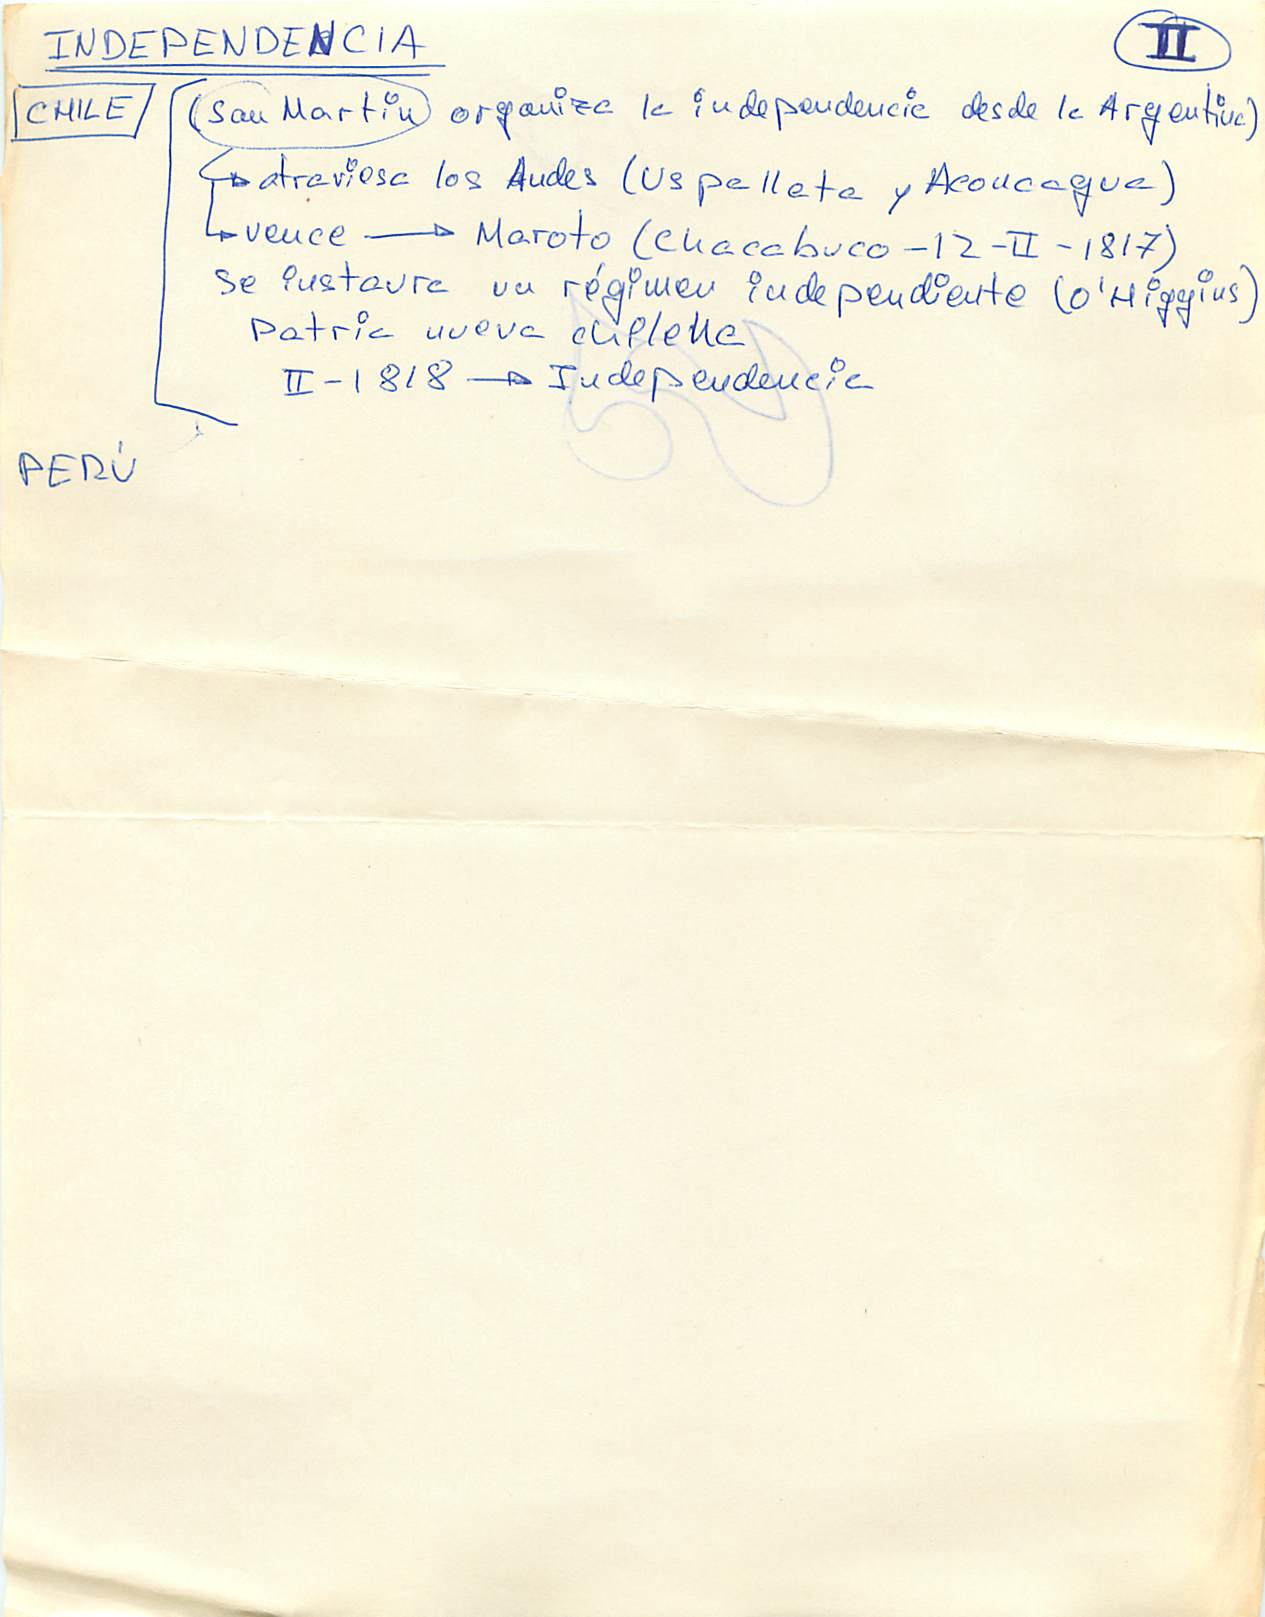 INDEPENDENCIA
II
CHILE (San Martín) organiza la independencia desde la Argentina)
atraviesa los Andes (Uspallata y Aconcagua)
vence → Maroto (Chacabuco - 12 - II - 1817)
se instaura un régimen independiente (O'Higgins)
Patria nueva chilena
II - 1818 → Independencia
PERÚ